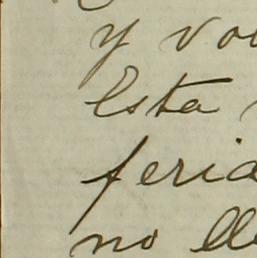 y vo
Esta
feria
no lle